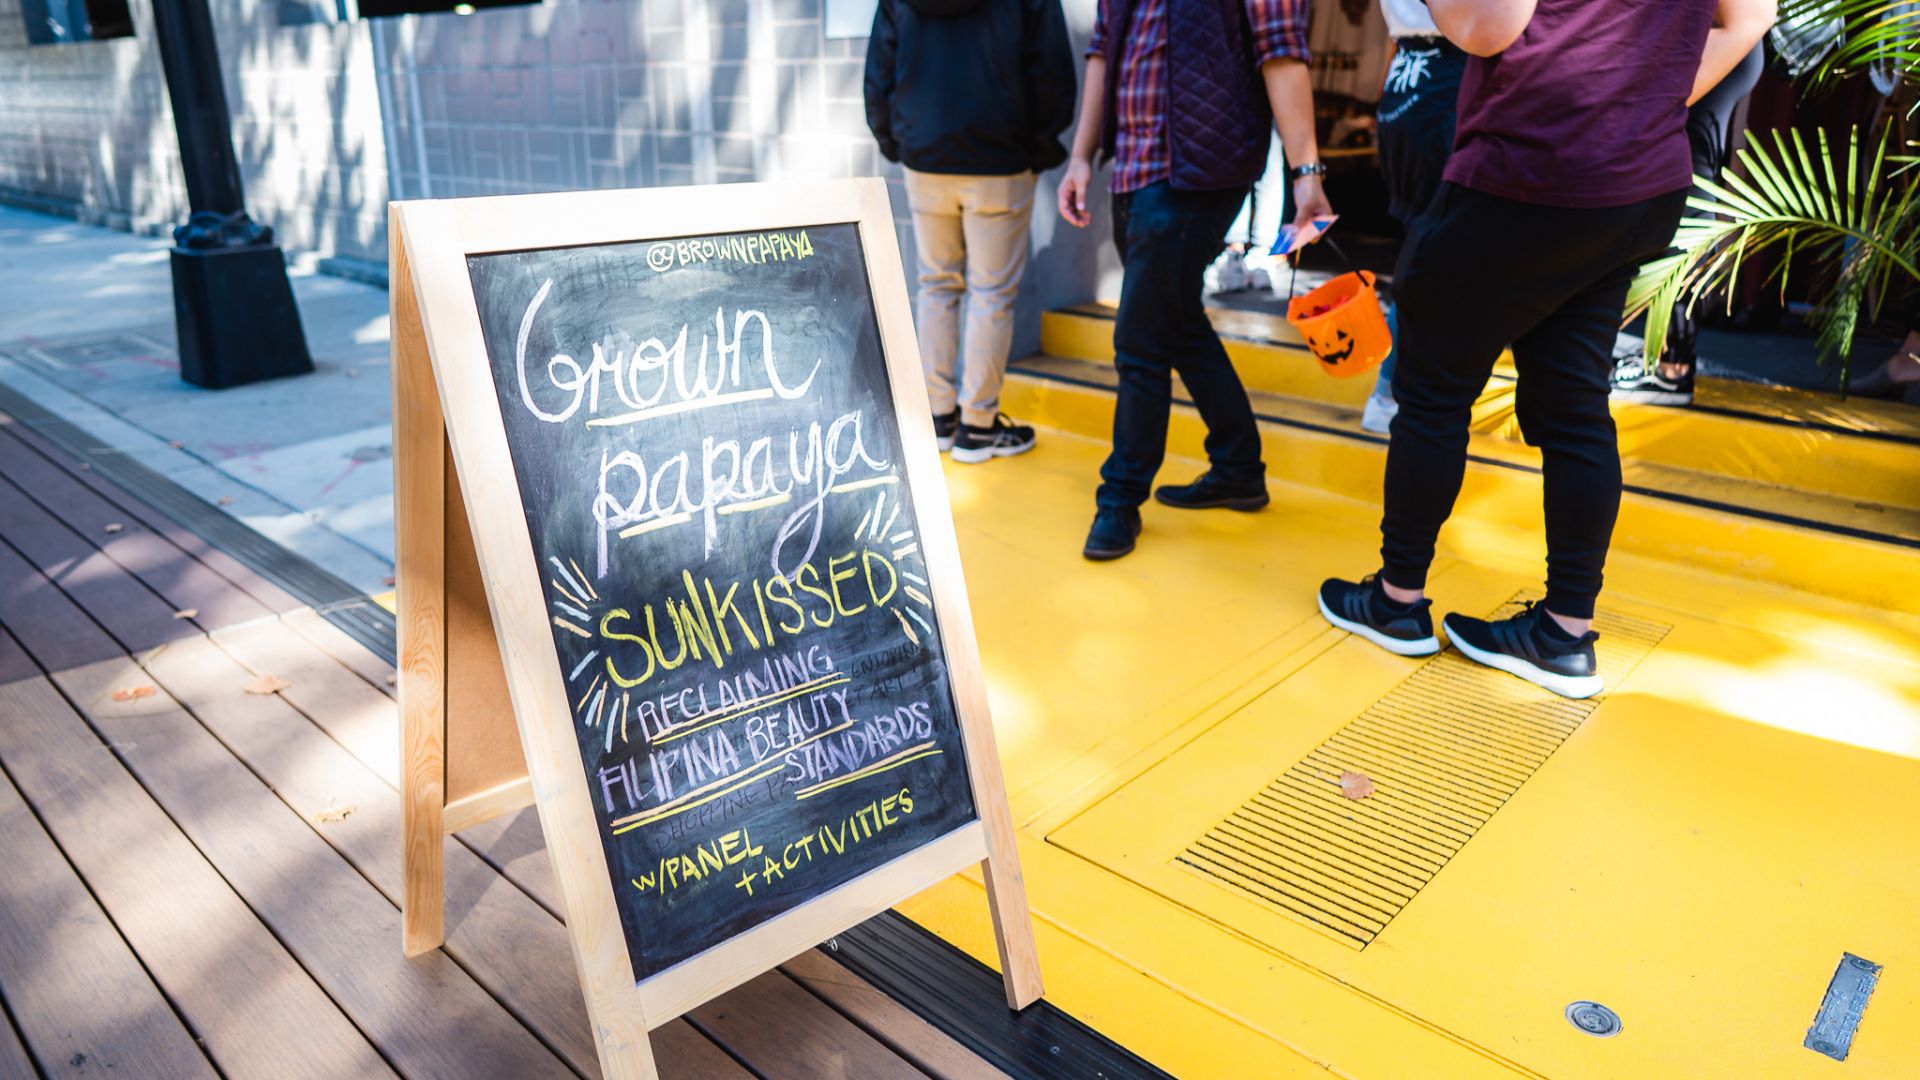 @BROWNPAPAYA
Brown
papaya
SUNKISSED
RECLAIMING
FILIPINA BEAUTY
STANDARDS
W/PANEL
+ ACTIVITIES